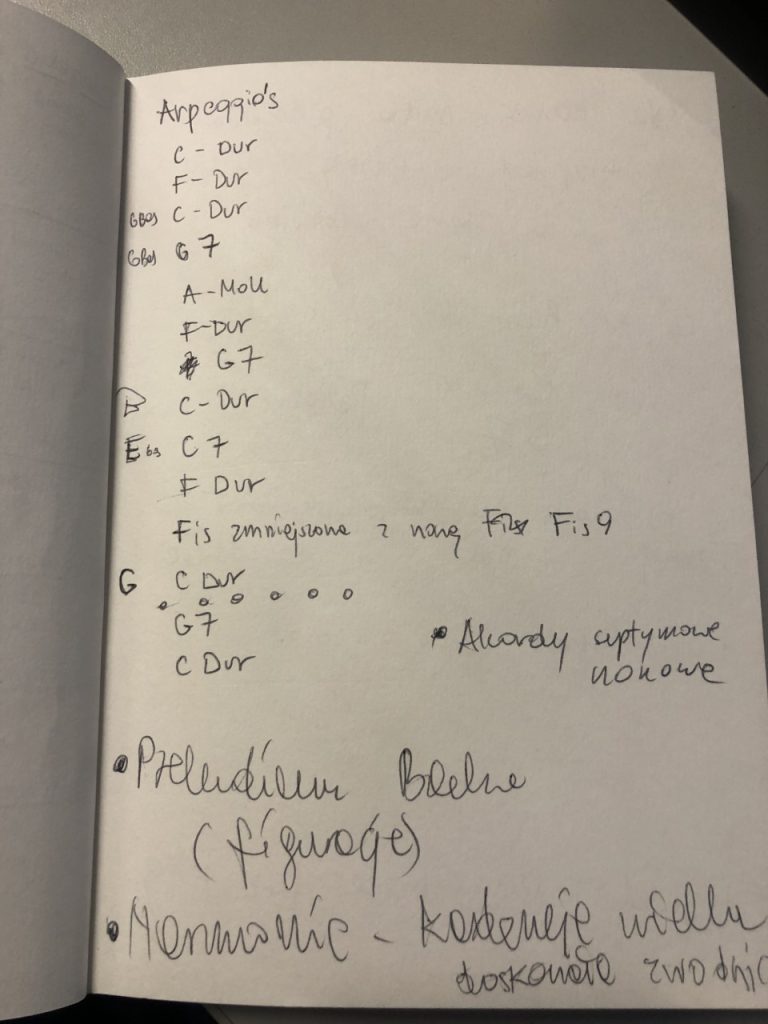 Arpeggio's
C - Dur
F - Dur
GBas C - Dur
GBas G 7
A - Moll
F - Dur
G 7
C - Dur
E C 7
F Dur
Fis zmniejszone z noną Fis 9
G C Dur
G 7
C Dur
• Akordy septymowe
nonowe
• Preludium
(figuracje)
• Harmonie - kadencję wielka
doskonała zwodnic